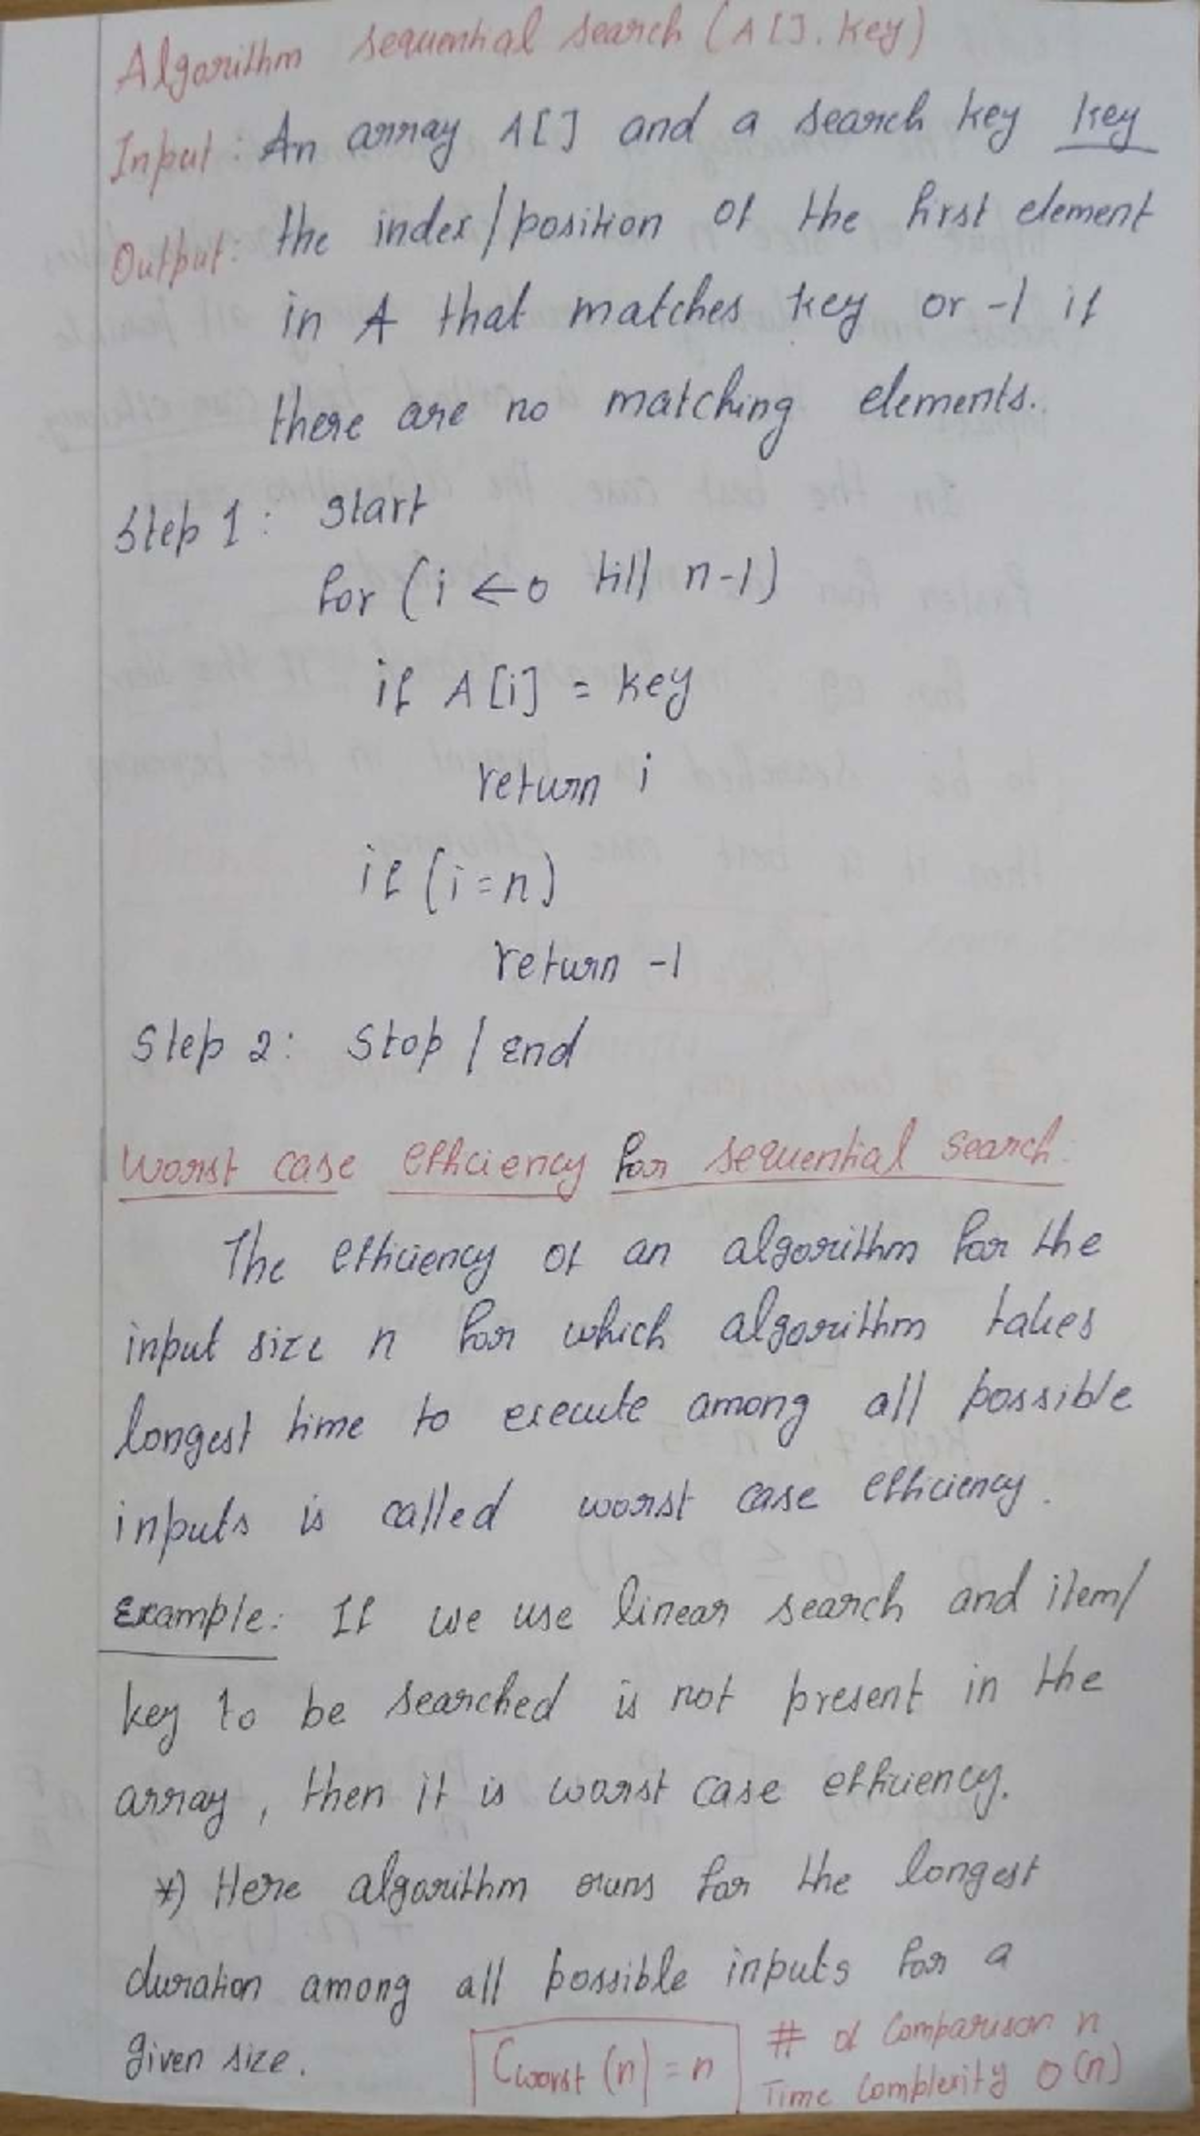 Algorithm sequential search (A[], key)
Input: An array A[] and a search key key
Output: the index/position of the first element
in A that matches key or -1 if
there are no matching elements.
Step 1: Start
for (i ← 0 till n-1)
if A[i] = key
return i
if (i = n)
return -1
Step 2: Stop / End
Worst case efficiency for sequential search:
The efficiency of an algorithm for the
input size n for which algorithm takes
longest time to execute among all possible
inputs is called worst case efficiency.
Example: If we use linear search and item/
key to be searched is not present in the
array, then it is worst case efficiency.
*) Here algorithm runs for the longest
duration among all possible inputs for a
given size.
Cworst (n) = n
# of Comparison n
Time Complexity O(n)